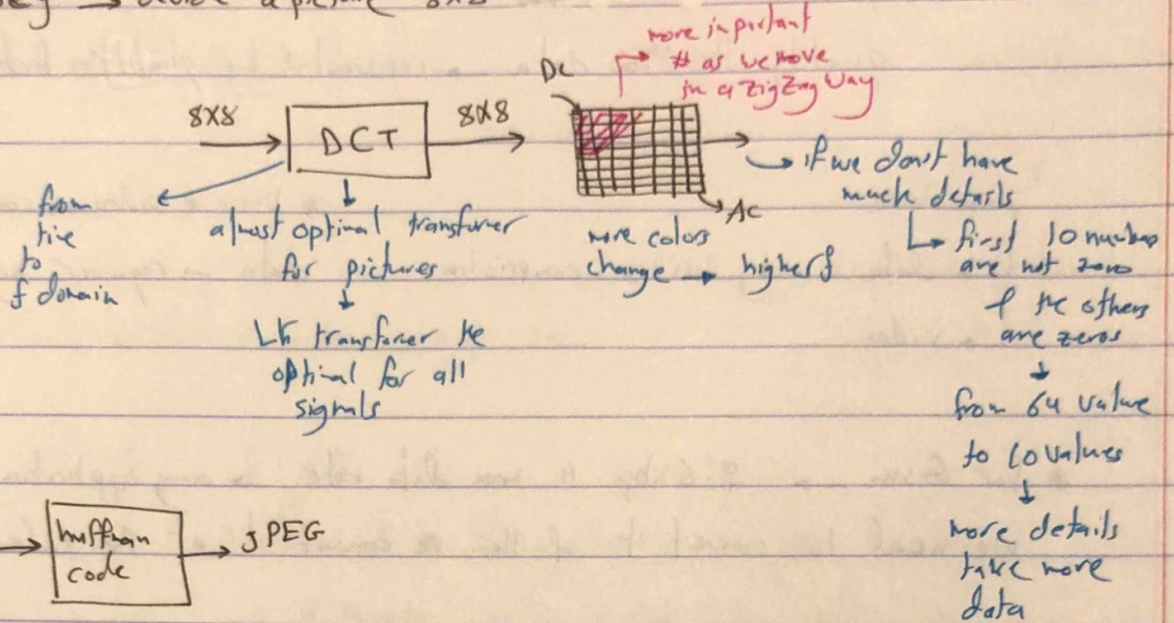 → divide a picture 8x8
more important
# as we move
in a ZigZag way
DC
8X8
DCT
8X8
→ if we don't have
much details
↳ first 10 number
are not zero
& the others
are zeros
↓
from 64 value
to 10 values
↓
more details
take more
data
from
to
f domain
almost optimal transformer
for pictures
↓
transformer the
optimal for all
signals
AC
more colors
change → higher f
huffman
code
→ JPEG